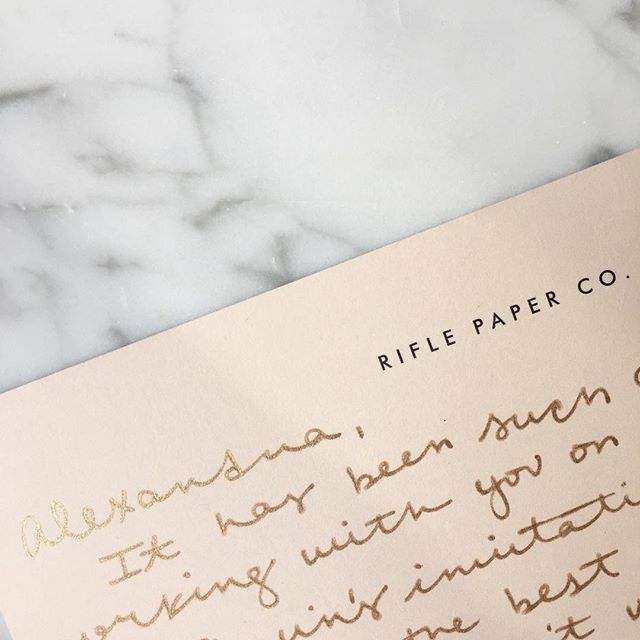 RIFLE PAPER CO.
Alexandra,
It has been such
working with you on
invitati
the best